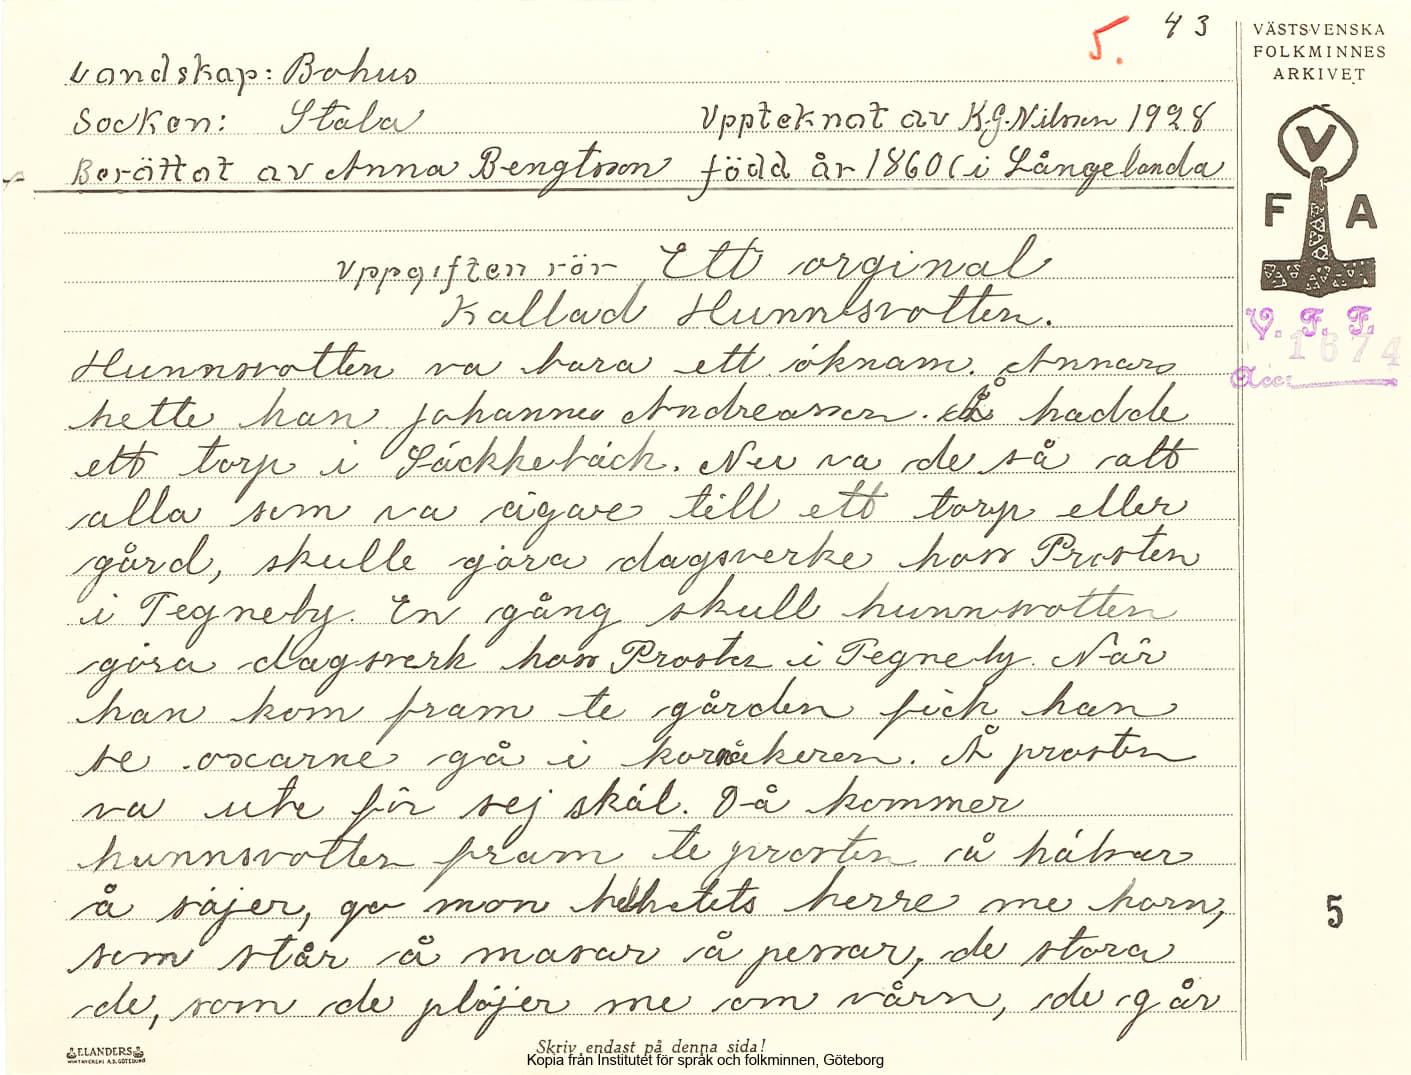 43
5.
VÄSTSVENSKA
FOLKMINNES
ARKIVET
V
F A
V. F. F.
1674
Acc:
Landskap: Bohus
Socken: Stala Upptecknat av K.G. Nilsson 1928
Berättat av Anna Bengtsson född år 1860 ( i Långelanda
Uppgiften rör Ett orginal
Kallad Hunnsvotten.
Hunnsvotten va bara ett öknam. Annars
hette han Johannes Andreasson. Å hadde
ett torp i Säckkebäck. Nu va de så att
alla som va ägare till ett torp eller
gård, skulle gjöra dagsverke hoss Prosten
i Tegneby. En gång skull hunnsvotten
göra dagsverk hoss Prosten i Tegneby. När
han kom fram te gården fick han
se oxarne gå i kornåkeren. Å prosten
va ute för sej skäl. Då kommer
hunnsvotten fram te prosten å hälsar
å säjer, go mon herre me horn,
som står å masar å pessar, de stora
de, som de plöjer me om vårn, de går
5
ELANDERS
Skriv endast på denna sida!
Kopia från Institutet för språk och folkminnen, Göteborg